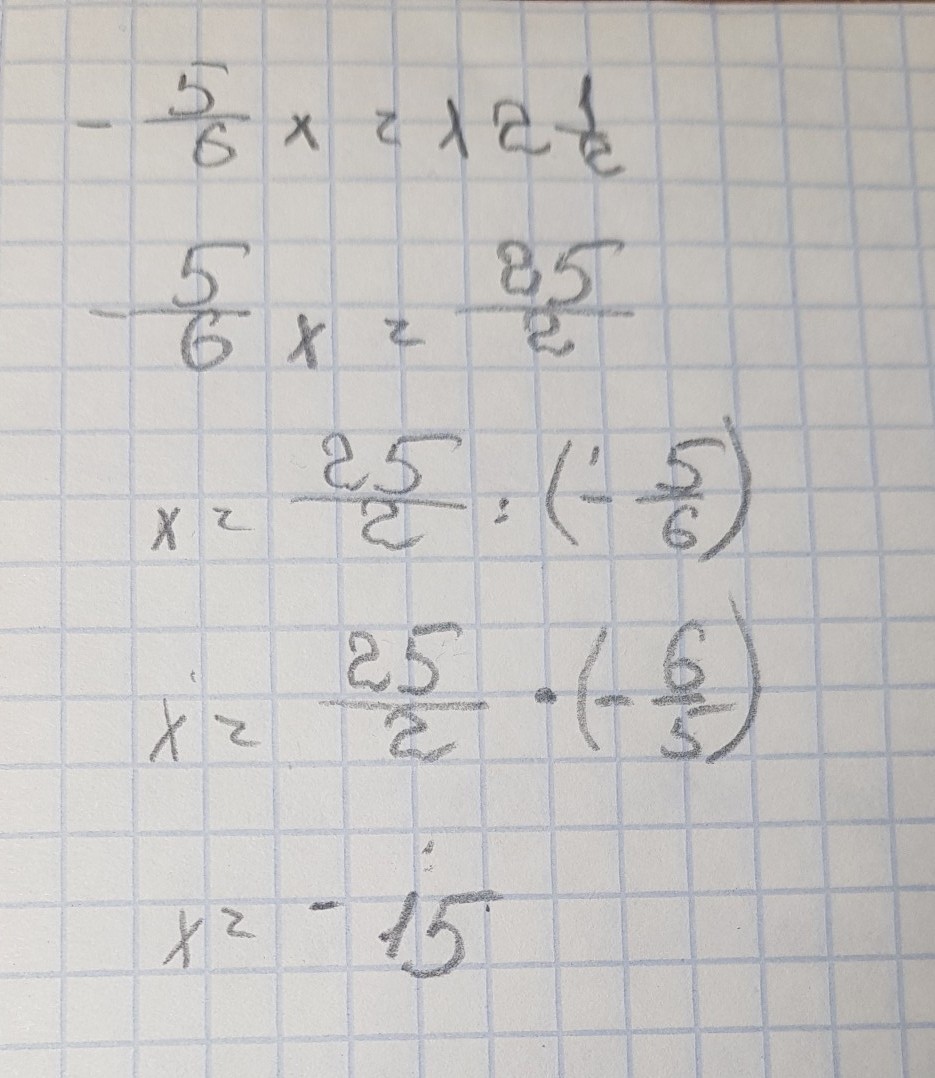 - 5/6 x = 12 1/2
- 5/6 x = 25/2
x = 25/2 : (- 5/6)
x = 25/2 · (- 6/5)
x = - 15